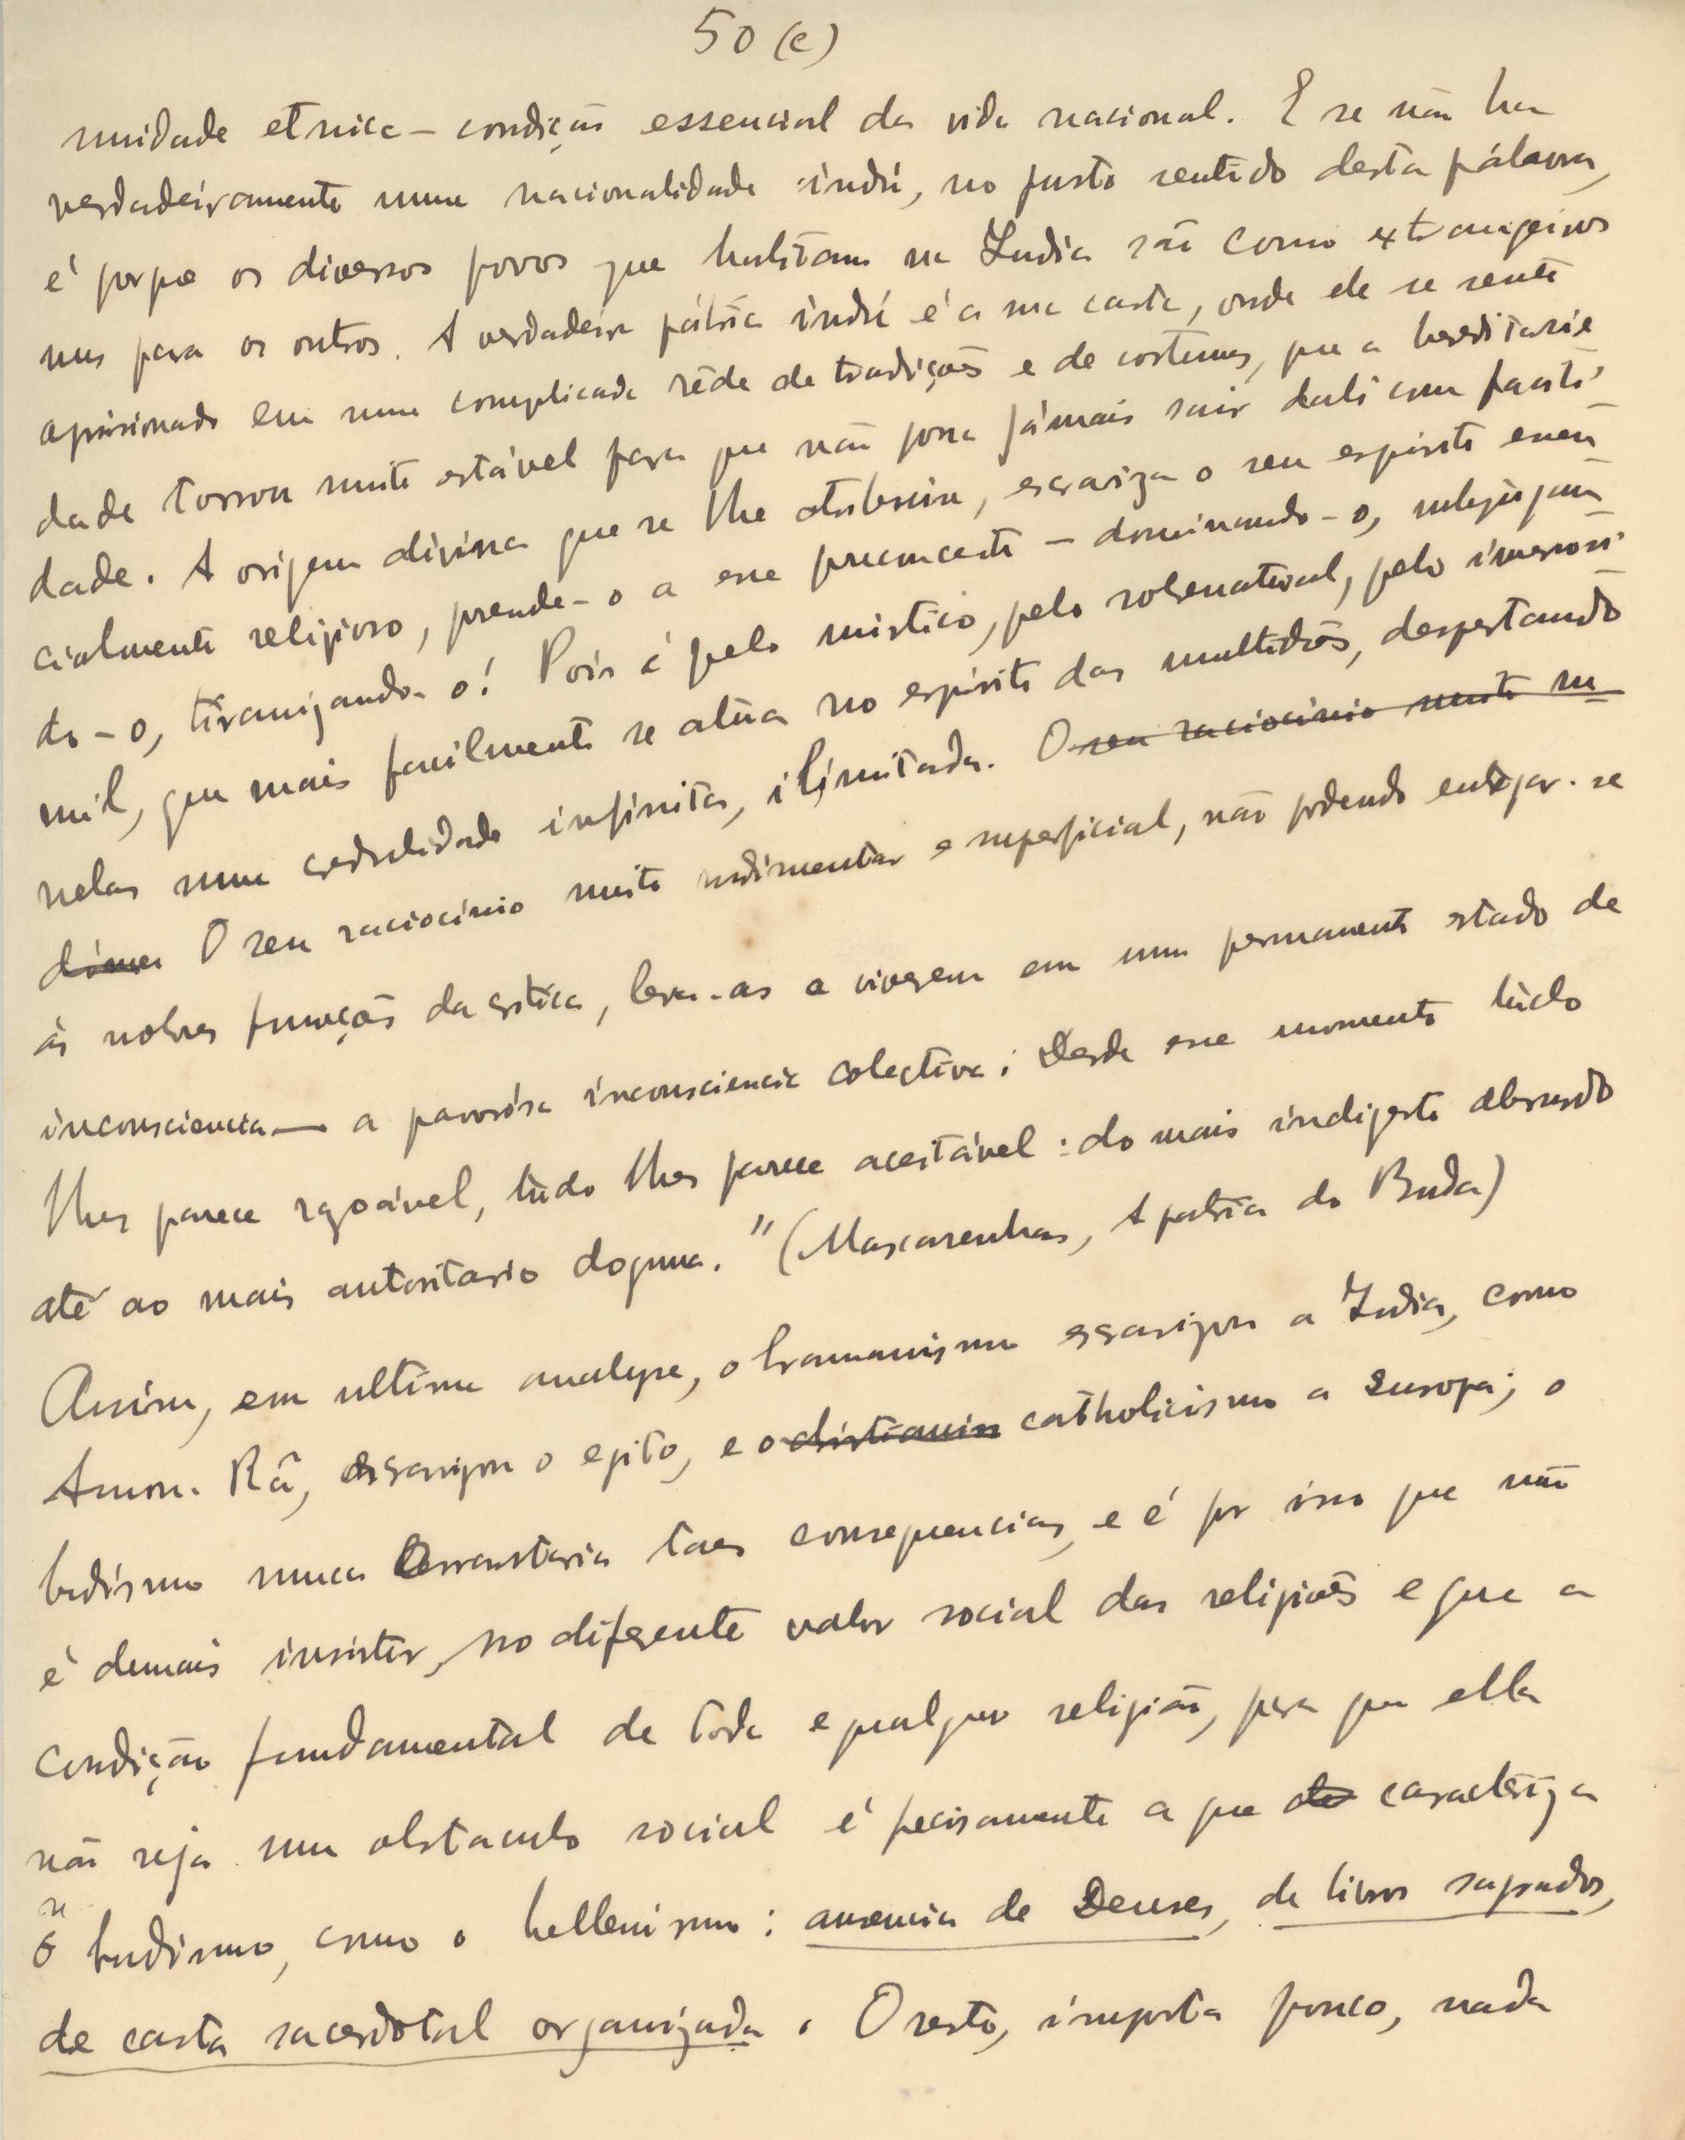 50 (c)
unidade etnica – condição essencial da vida nacional. E se não ha
verdadeiramente uma nacionalidade indú, no justo sentido desta pálavra,
é porque os diversos povos que habitam na India são como extrangeiros
uns para os outros. A verdadeira pátria indú é a sua casta, onde ele se sente
aprisionado em uma complicada rêde de tradições e de costumes, que a hereditarie
dade tornou muito estável para que não possa jámais sair dali com facili-
dade. A origem divina que se lhe atribuiu, escraviza o seu espirito essen
cialmente religioso, prende-o a esse preconceito – dominando-o, subjugan
do-o, tiranizando-o! Pois é pelo mistico, pelo sobrenatural, pelo inverosi-
mil, que mais facilmente se atúa no espirito das multidões, despertando
nelas uma credulidade infinita, ilimitada. O seu raciocinio muito ru
dimen O seu raciocinio muito rudimentar e superficial, não podendo entregar-se
ás nobres funcções da critica, leva-as a viverem em um permanente estado de
inconsciencia — a pavorósa inconsciencia colectiva; Desde esse momento túdo
lhes parece rasoável, túdo lhes parece aceitável: do mais indigesto absurdo
até ao mais autoritario dogma." (Mascarenhas, A patria do Buda)
Assim, em ultima analyse, o bramanismo escravizou a India, como
Amon-Râ, escravizou o egito, e o christianis catholicismo a Europa; o
budismo nunca acarretaria taes consequencias, e é por isso que não
é demais insistir, no diferente valor social das religiões e que a
condição fundamental de toda e qualquer religião, para que ella
não seja um obstaculo social é precisamente a que caracteriza
o budismo, como o hellenismo: ausencia de Deuses, de livros sagrados,
de casta sacerdotal organizada. O resto, importa pouco, nada